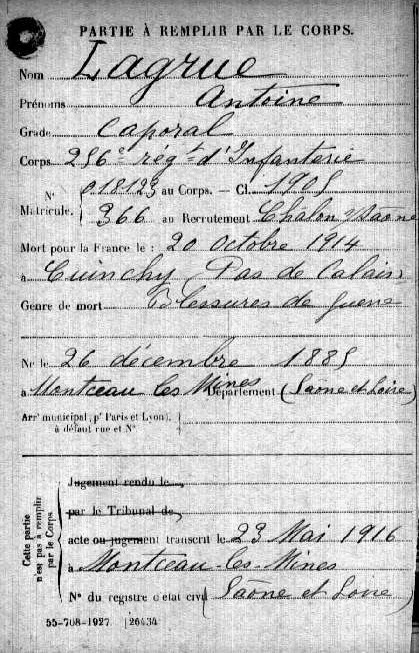 PARTIE À REMPLIR PAR LE CORPS.
Nom Lagrue
Prénoms Antoine
Grade Caporal
Corps 256e régt d'Infanterie
N° Matricule. 018123 au Corps. — Cl. 1905
366 au Recrutement Chalon s/Saône
Mort pour la France le : 20 octobre 1914
à Cuinchy Pas de Calais
Genre de mort Blessures de guerre
Né le 26 décembre 1885
à Montceau les Mines Département (Saône et Loire)
Arrt municipal, (pr Paris et Lyon),
à défaut rue et N°
Cette partie n'est pas à remplir par le Corps.
Jugement rendu le
par le Tribunal de
acte ou jugement transcrit le 23 Mai 1916
à Montceau-les-Mines
N° du registre d'état civil (Saône et Loire)
55-708-1927. [26434